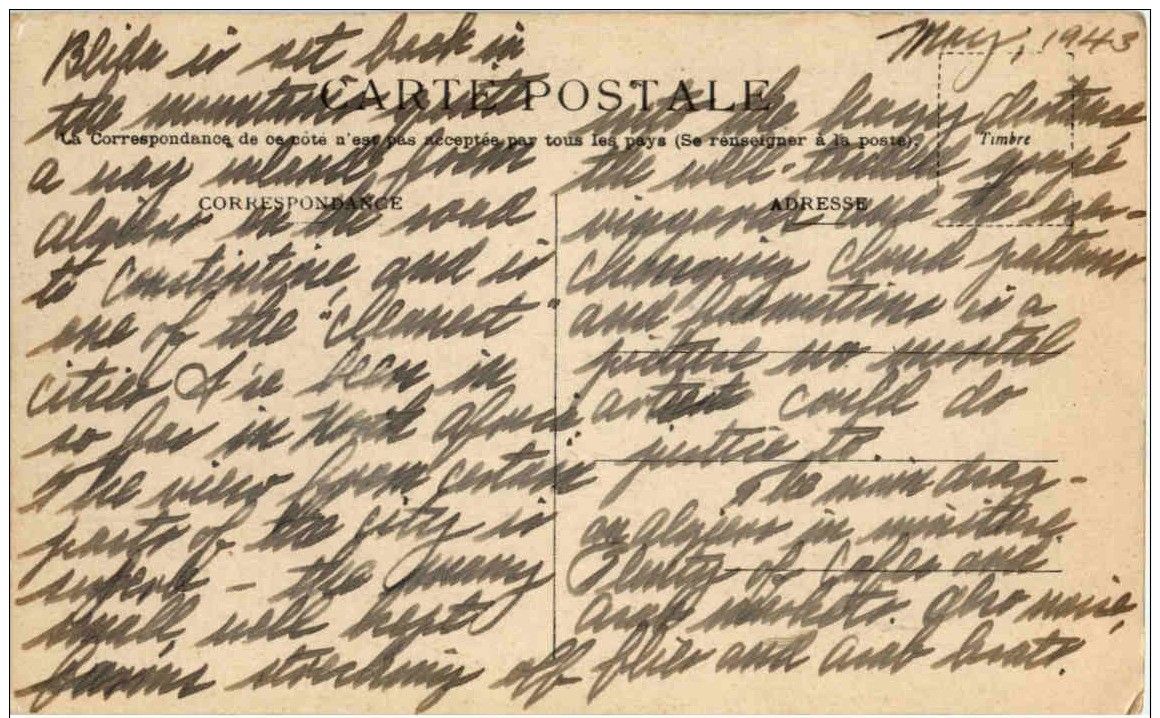 May, 1943
CARTE POSTALE
La Correspondance de ce côté n'est pas acceptée par tous les pays (Se renseigner à la poste).
Timbre
CORRESPONDANCE
ADRESSE
Blida is set back in
the mountains quite
a way inland from
Algiers on the road
to Constintine, and is
one of the "cleanest"
cities I've been in
so far in North Africa
The view from certain
parts of the city is
superb – the many
small, well kept
farms stretching off
into the hazy distance
the well-tended grape
vinyards and the ever-
changing cloud patterns
and formations is a
picture no mortal
artist could do
justice to.
The main drag –
an Algiers in miniture.
Plenty of Cafes and
Arab markets. Also noise,
flies and Arab brats.